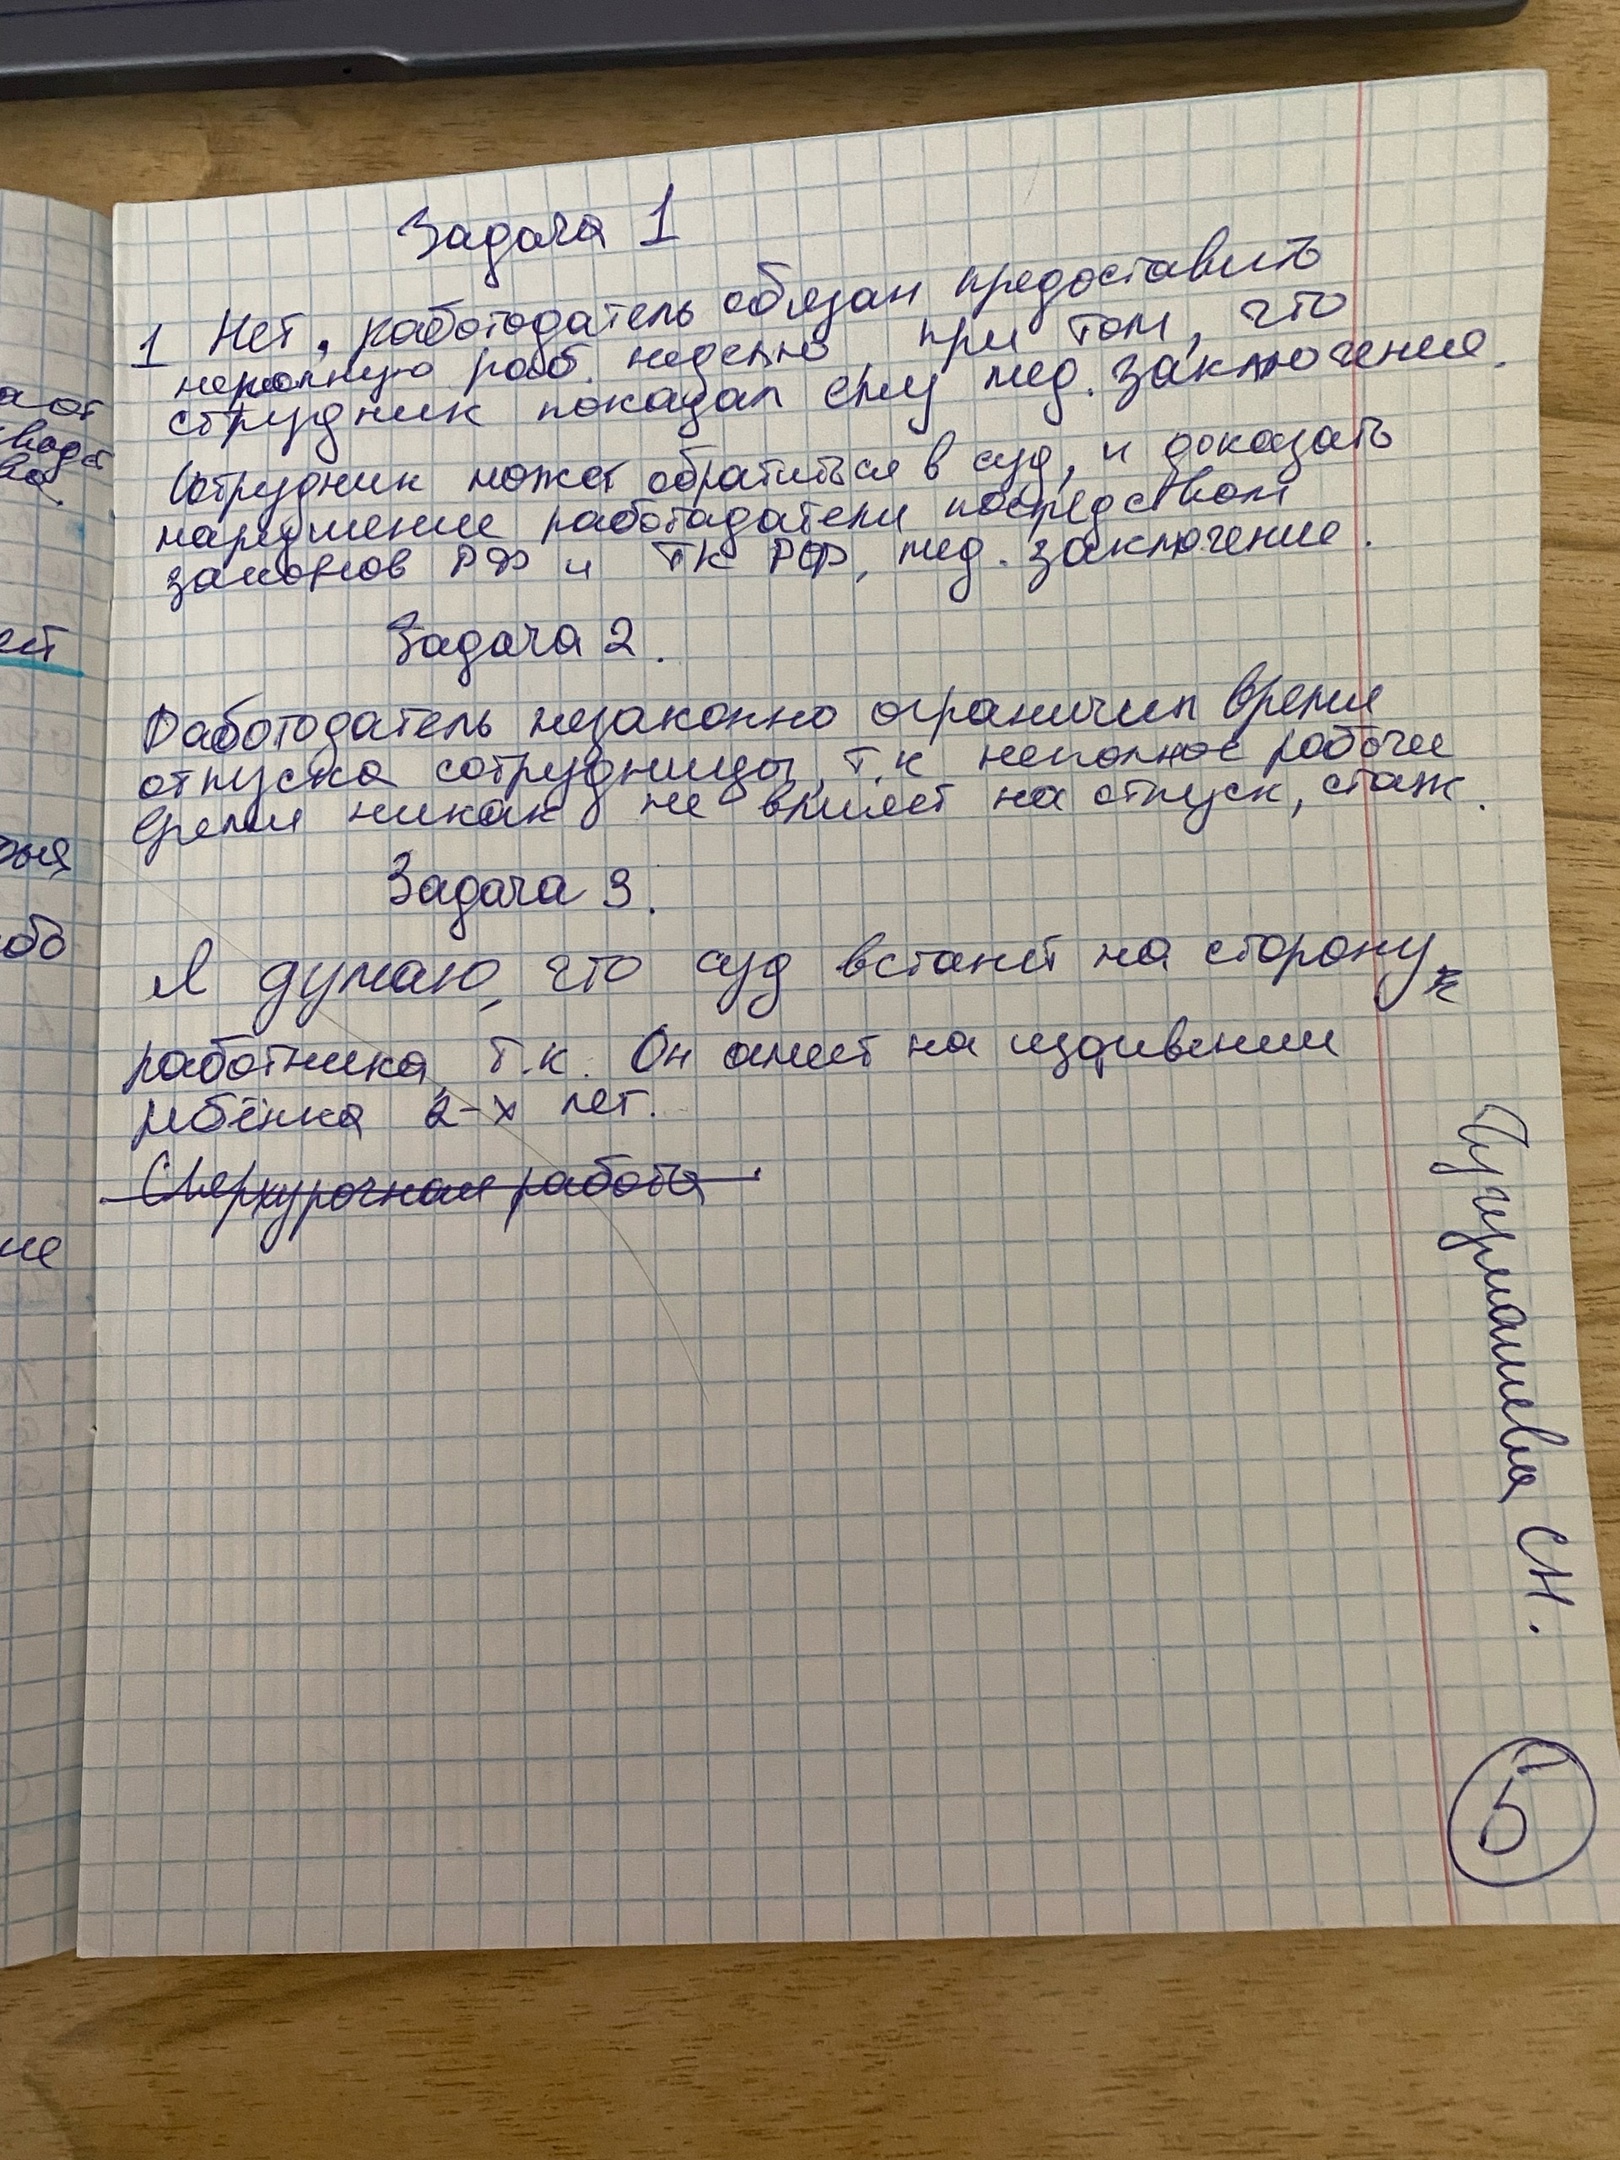 Задача 1
1 Нет, работодатель обязан предоставить
неполную раб. неделю, при том, что
струдник показал ему мед. заключение.
Сотрудник может обратиться в суд, и доказать
нарушение работадатели посредством
законов РФ и ТК РФ, мед. заключение.
Задача 2.
Работодатель незаконно ограничил время
отпуска сотрудницы, т.к неполное рабочее
время никак не влияет на отпуск, стаж.
Задача 3.
Я думаю, что суд встанет на сторону
работника, т.к. Он имеет на иждивении
ребёнка 2-х лет.
Сверхурочная работа
СН.
5
ают
ест
рыя
обо
ие